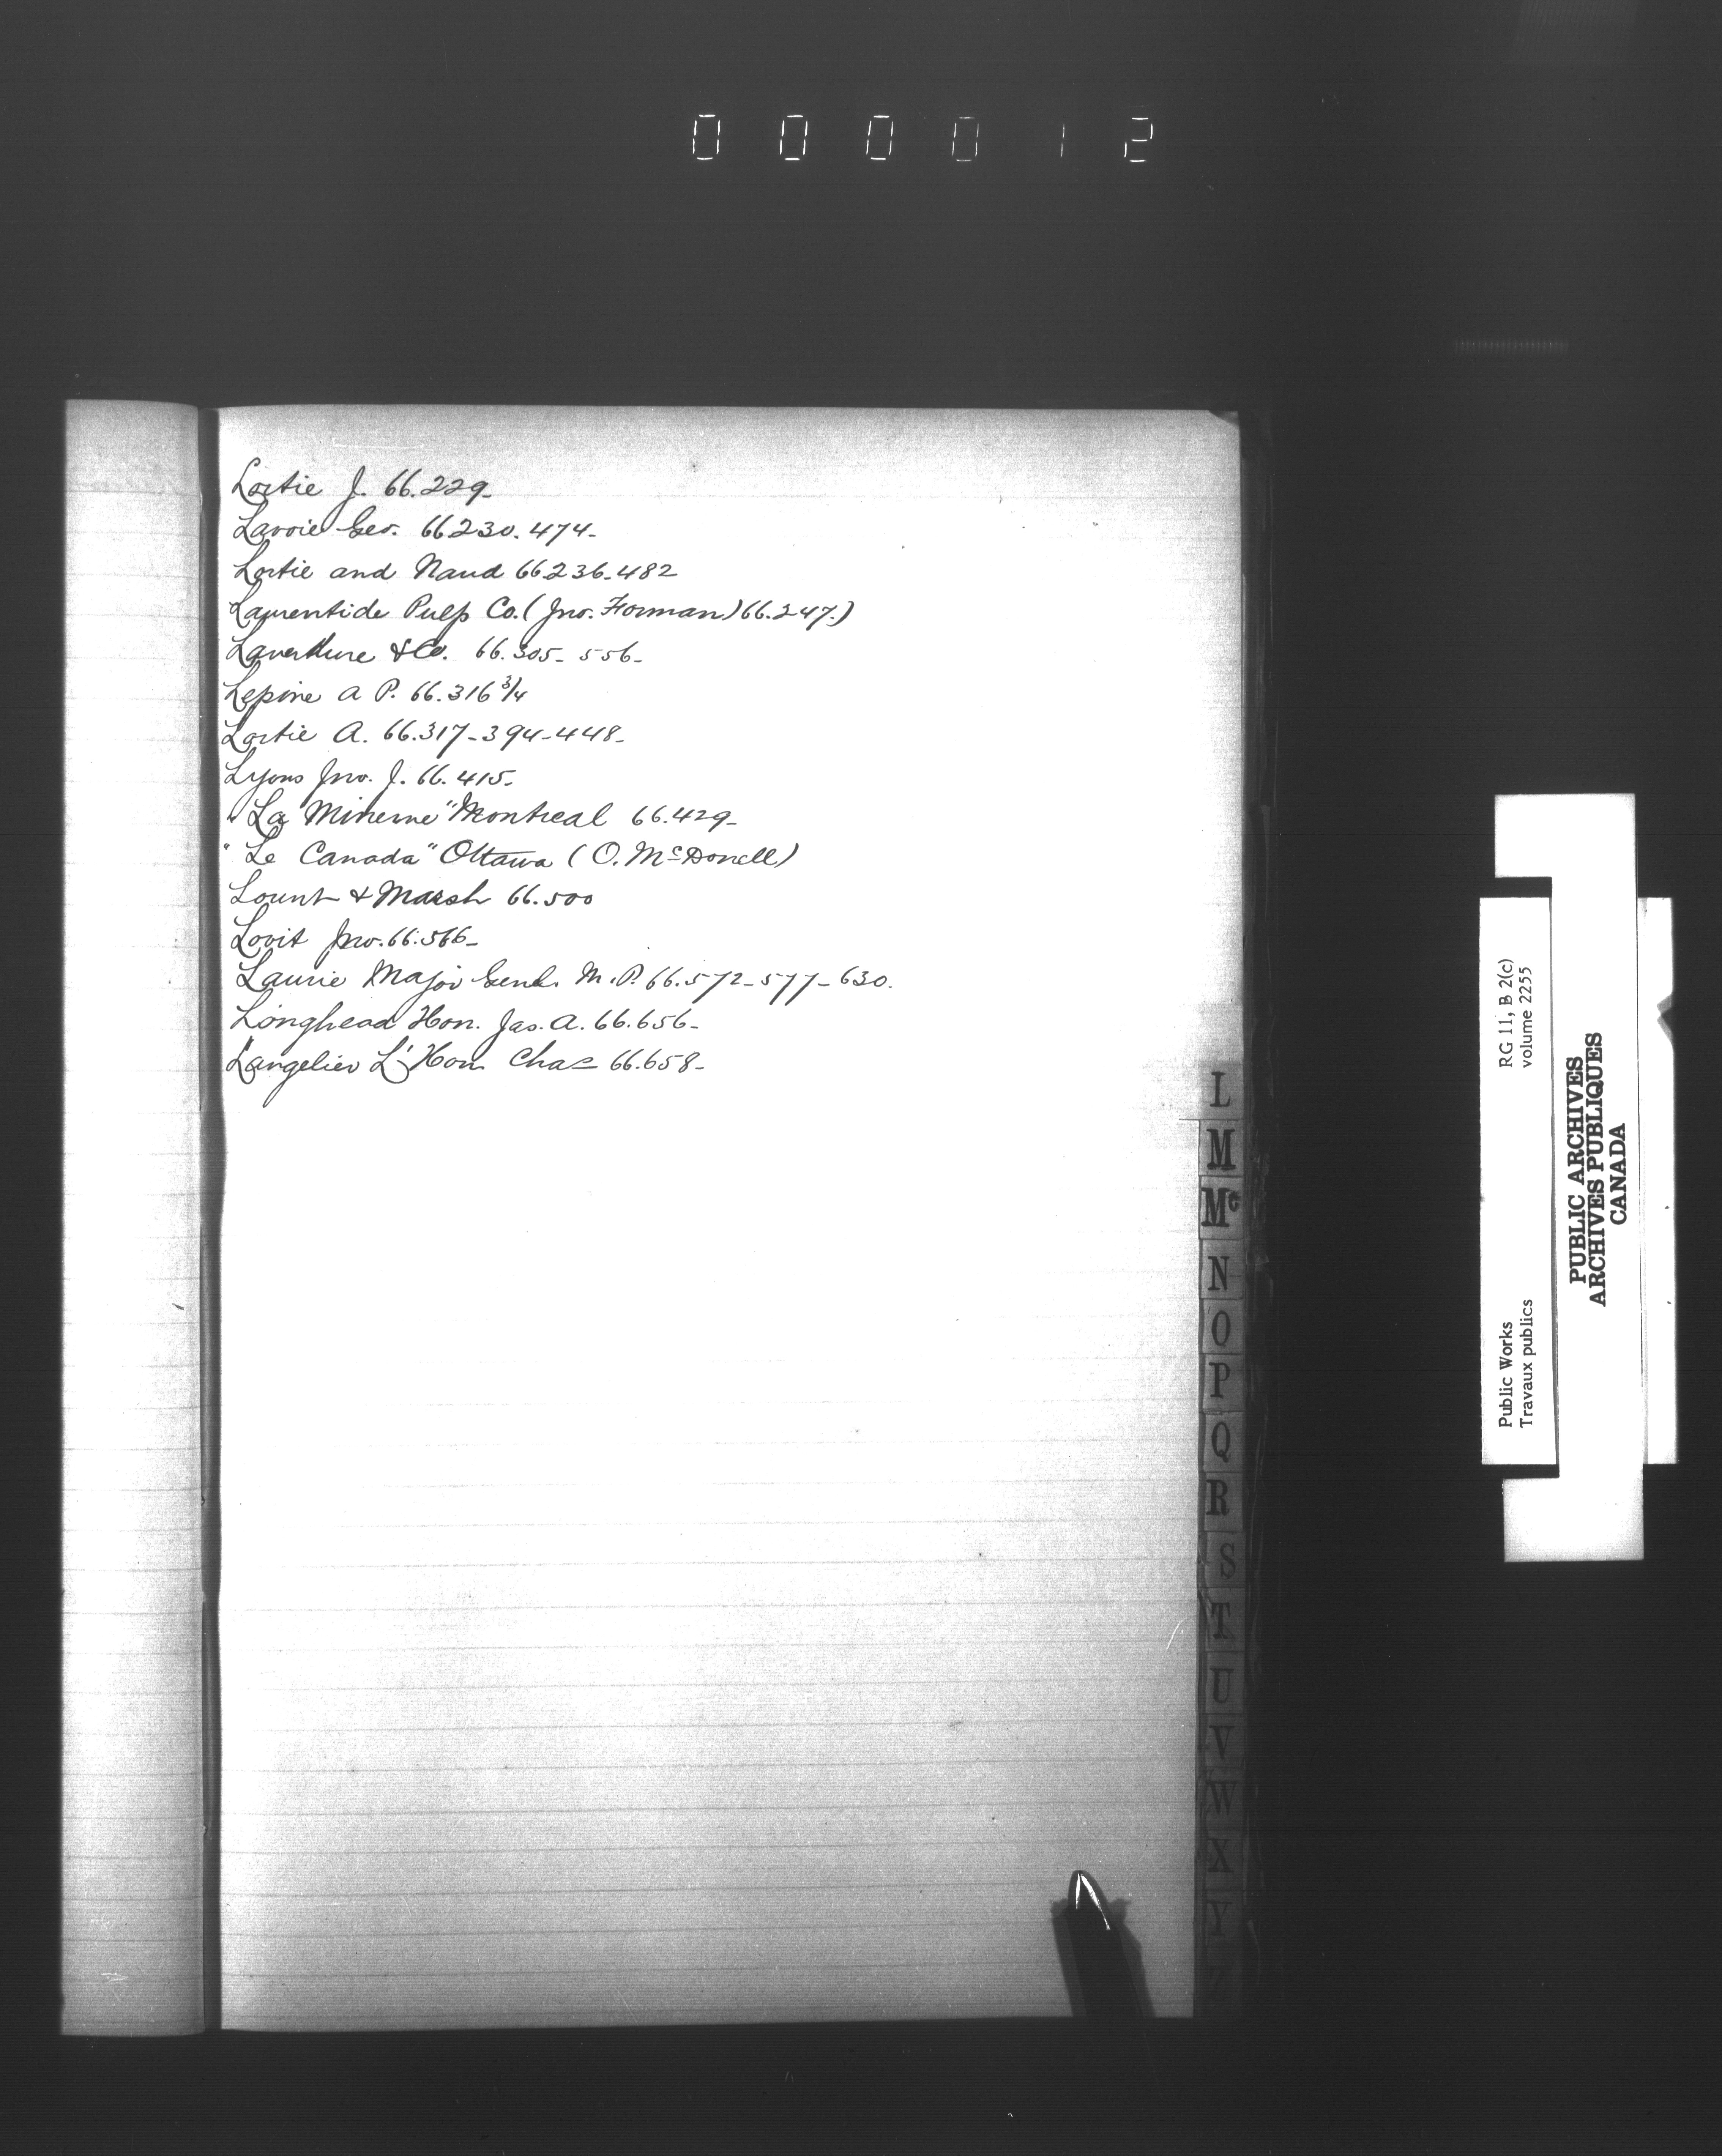 000012
Lortie J. 66.229-
Lavoie Geo. 66230.474-
Lortie and Naud 66236-482
Laurentide Pulp Co. (Jno. Forman) 66.247.)
Laverdure & Co. 66.305- 556-
Lepine A P. 66.316 3/4
Lortie A. 66.317-394-448-
Lyons Jno. J. 66.415-
"La Minerve" Montreal 66.429-
"Le Canada" Ottawa (O. McDonell)
Lount & Marsh 66.500
Lovit Jno. 66.566-
Laurie Major Genl. M.P. 66.572-577-630.
Longhead Hon. Jas. A. 66.656-
Langelier L'Hon Chas 66.658-
L
M
Mc
N
O
P
Q
R
S
T
U
V
W
X
Y
Z
Public Works
Travaux publics
RG 11, B 2(c)
volume 2255
PUBLIC ARCHIVES
ARCHIVES PUBLIQUES
CANADA